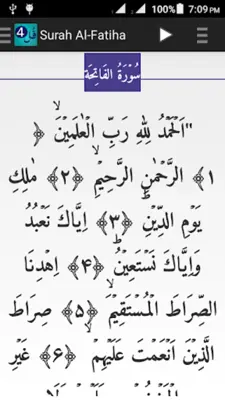 7:09 PM
4 Surah Al-Fatiha
سُوْرَةُ الْفَاتِحَة
"اَلْحَمْدُ لِلّٰهِ رَبِّ الْعٰلَمِيْنَۙ ﴿
۱﴾ الرَّحْمٰنِ الرَّحِيْمِۙ ﴿۲﴾ مٰلِكِ
يَوْمِ الدِّيْنِؕ ﴿۳﴾ اِيَّاكَ نَعْبُدُ
وَاِيَّاكَ نَسْتَعِيْنُؕ ﴿۴﴾ اِهْدِنَا
الصِّرَاطَ الْمُسْتَقِيْمَۙ ﴿۵﴾ صِرَاطَ
الَّذِيْنَ اَنْعَمْتَ عَلَيْهِمْ ۙ ﴿۶﴾ غَيْرِ